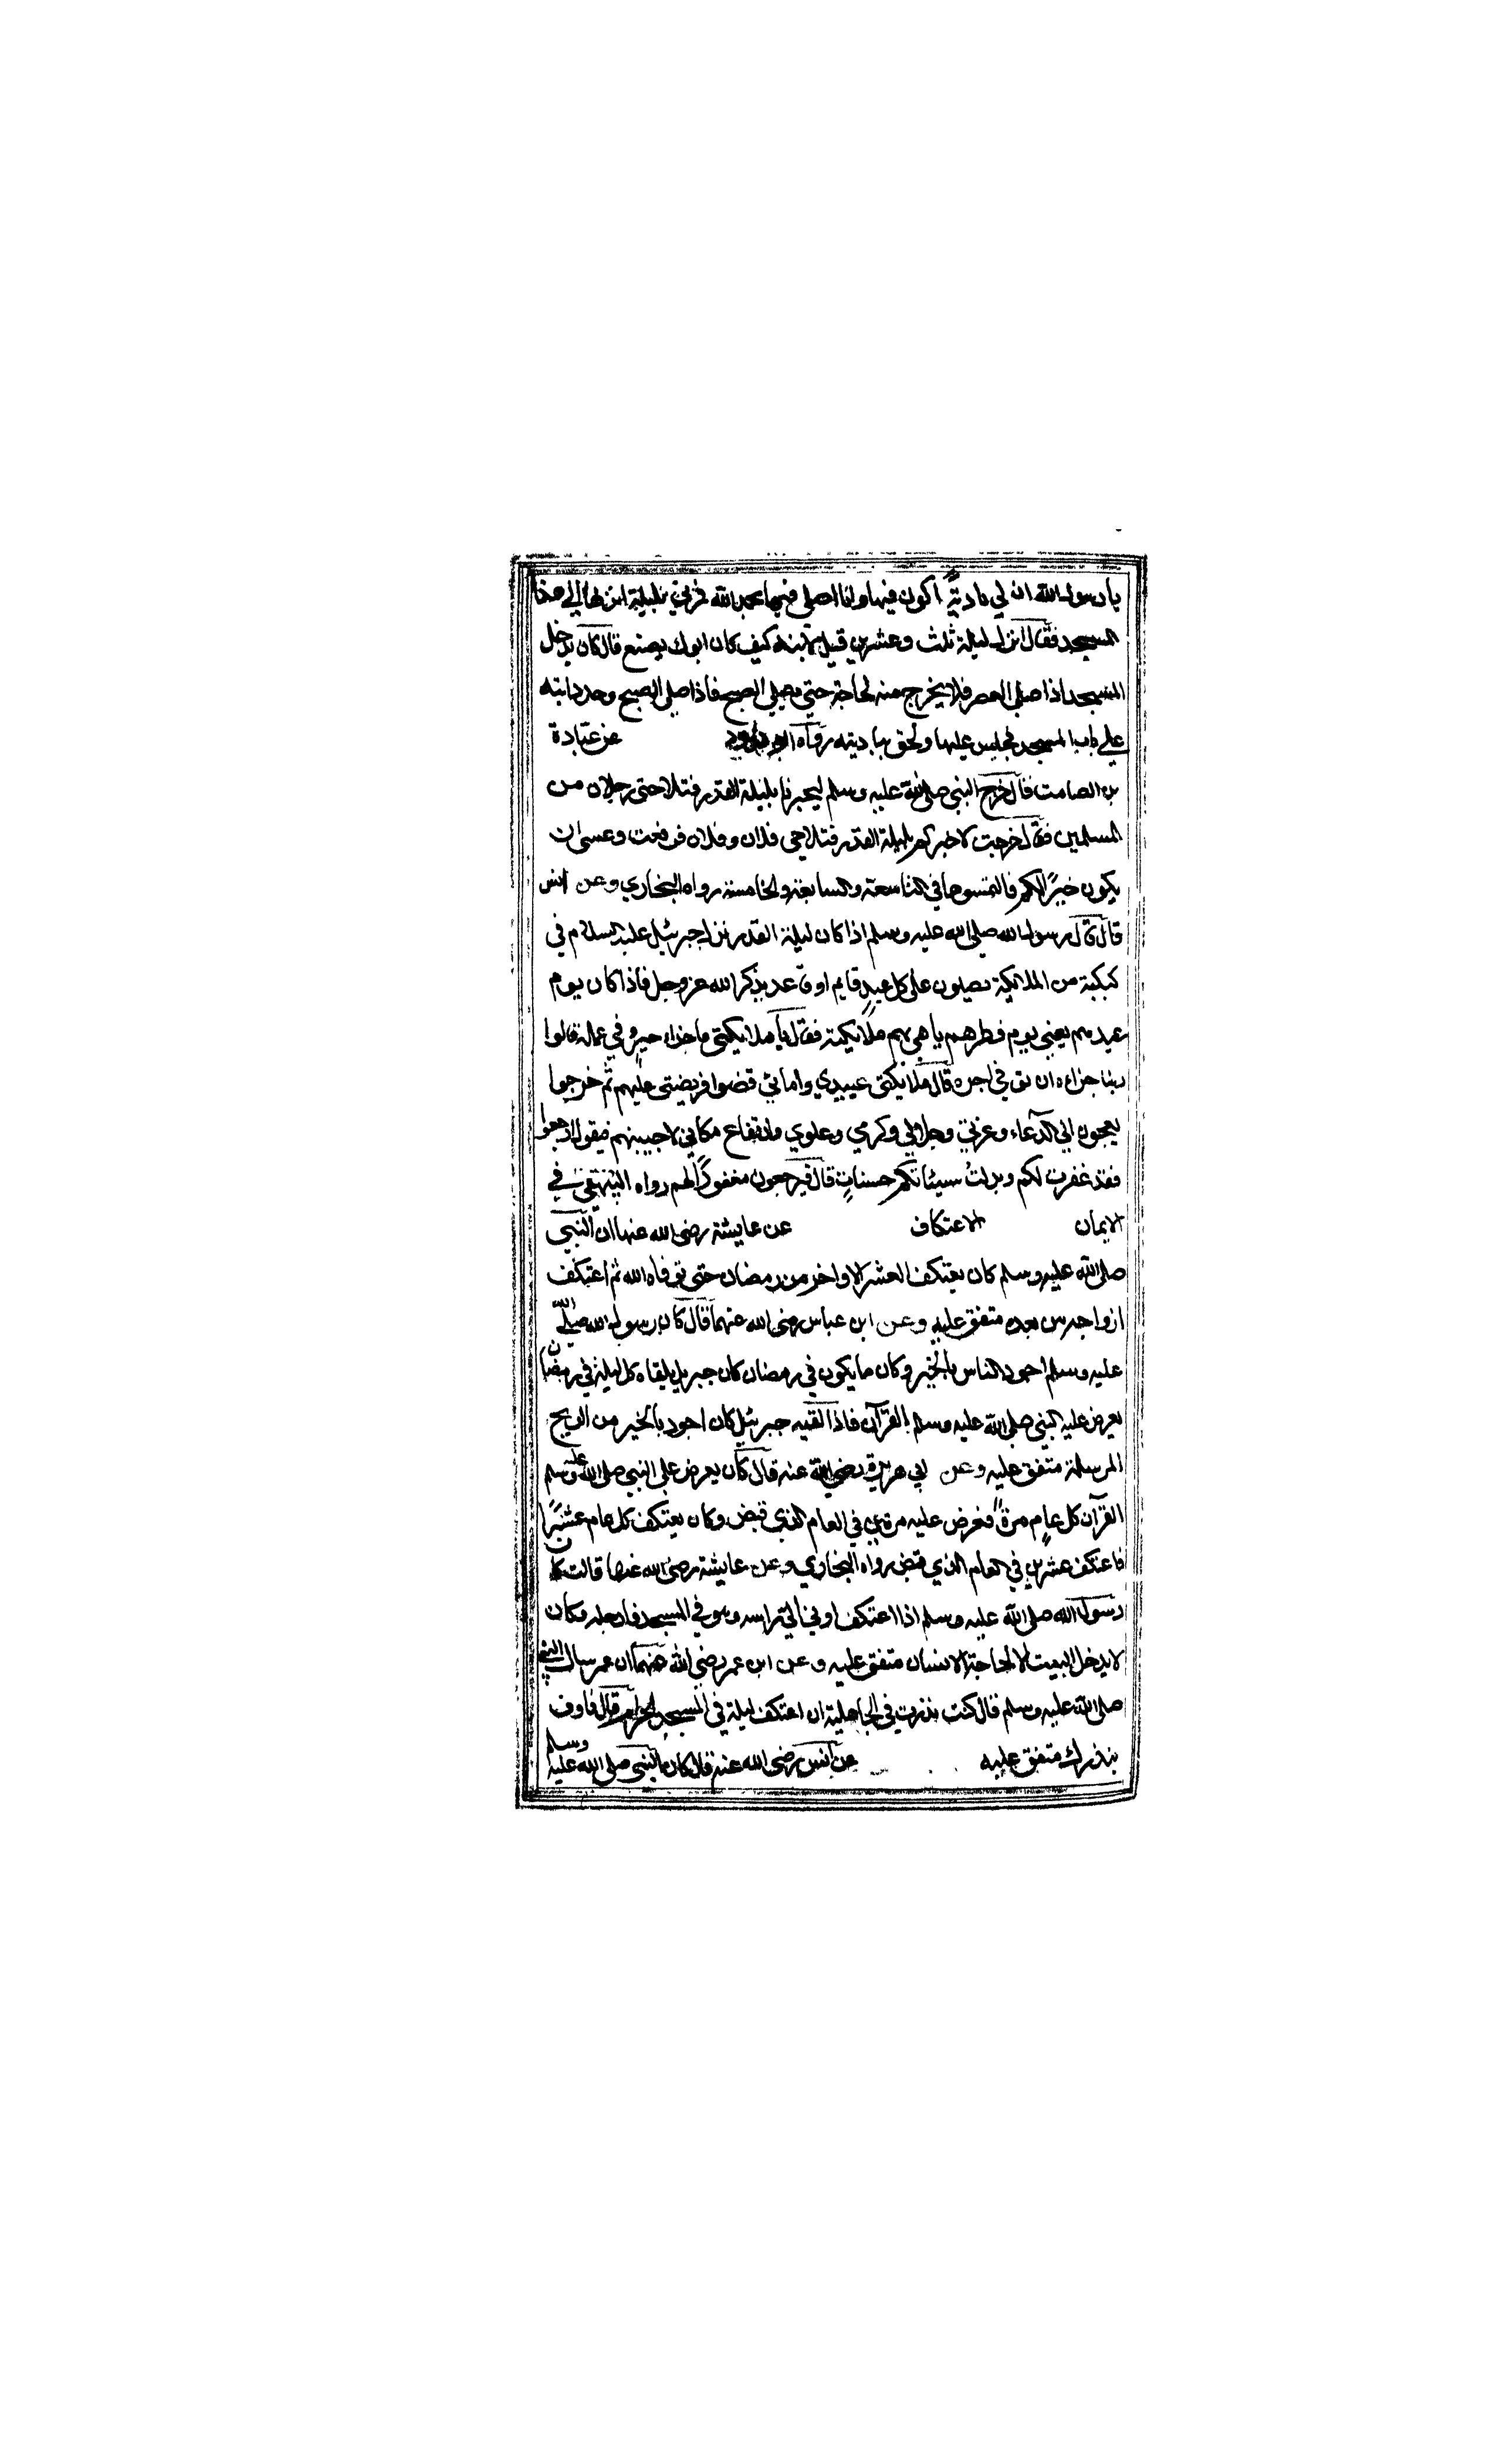 يا رسول الله ان لي بادية اكون فيها وانا اصلي فيها بحمد الله فمرني بليلة انزلها الي هذا
المسجد فقال انزل ليلة ثلث وعشرين قيل لابنه كيف كان ابوك يصنع قال كان يدخل
المسجد اذا صلي العصر فلا يخرج منه لحاجة حتي يصلي الصبح فاذا صلي الصبح وجد دابته
علي باب المسجد فجلس عليها ولحق بباديته رواه ابو داود عن عبادة
بن الصامت قال خرج النبي صلى الله عليه وسلم ليخبرنا بليلة القدر فتلاحى رجلان من
المسلمين فقال خرجت لاخبركم بليلة القدر فتلاحي فلان وفلان فرفعت وعسى ان
يكون خيرًا لكم فالتمسوها في التاسعة والسابعة والخامسة رواه البخاري وعن انس
قال قال رسول الله صلى الله عليه وسلم اذا كان ليلة القدر نزل جبرئيل عليه السلام في
كبكبة من الملائكة يصلون على كل عبد قايم او قاعد يذكر الله عز وجل فاذا كان يوم
عيدهم يعني يوم فطرهم باهى بهم ملائكته فقال يا ملائكتي ما جزاء اجير وفي عمله قالوا
ربنا جزاءه ان يوفي اجره قال ملائكتي عبيدي وامائي قضوا فريضتي عليهم ثم خرجوا
يعجون الي الدعاء وعزتي وجلالي وكرمي وعلوي وارتفاع مكاني لاجيبنهم فيقول ارجعوا
فقد غفرت لكم وبدلت سيئاتكم حسنات قال فيرجعون مغفورًا لهم رواه البيهقي في
الايمان الاعتكاف عن عايشة رضى الله عنها ان النبي
صلى الله عليه وسلم كان يعتكف العشر الاواخر من رمضان حتى توفاه الله ثم اعتكف
ازواجه من بعده متفق عليه وعن ابن عباس رضى الله عنهما قال كان رسول الله صلى الله
عليه وسلم اجود الناس بالخير وكان ما يكون في رمضان كان جبريل يلقاه كل ليلة في رمضان
يعرض عليه النبي صلى الله عليه وسلم القرآن فاذا لقيه جبرئيل كان اجود بالخير من الريح
المرسلة متفق عليه وعن ابي هريرة رضي الله عنه قال كان يعرض على النبي صلى الله عليه وسلم
القرآن كل عام مرة فعرض عليه مرتين في العام الذي قبض وكان يعتكف كل عام عشرًا
فاعتكف عشرين في العام الذي قبض رواه البخاري وعن عايشة رضى الله عنها قالت كان
رسول الله صلى الله عليه وسلم اذا اعتكف ادني الي راسه وهو في المسجد فارجله وكان
لا يدخل البيت الا لحاجة الانسان متفق عليه وعن ابن عمر رضي الله عنهما ان عمر سال النبي
صلى الله عليه وسلم قال كنت نذرت في الجاهلية ان اعتكف ليلة في المسجد الحرام قال فاوف
بنذرك متفق عليه عن انس رضى الله عنه قال كان النبي صلى الله عليه وسلم